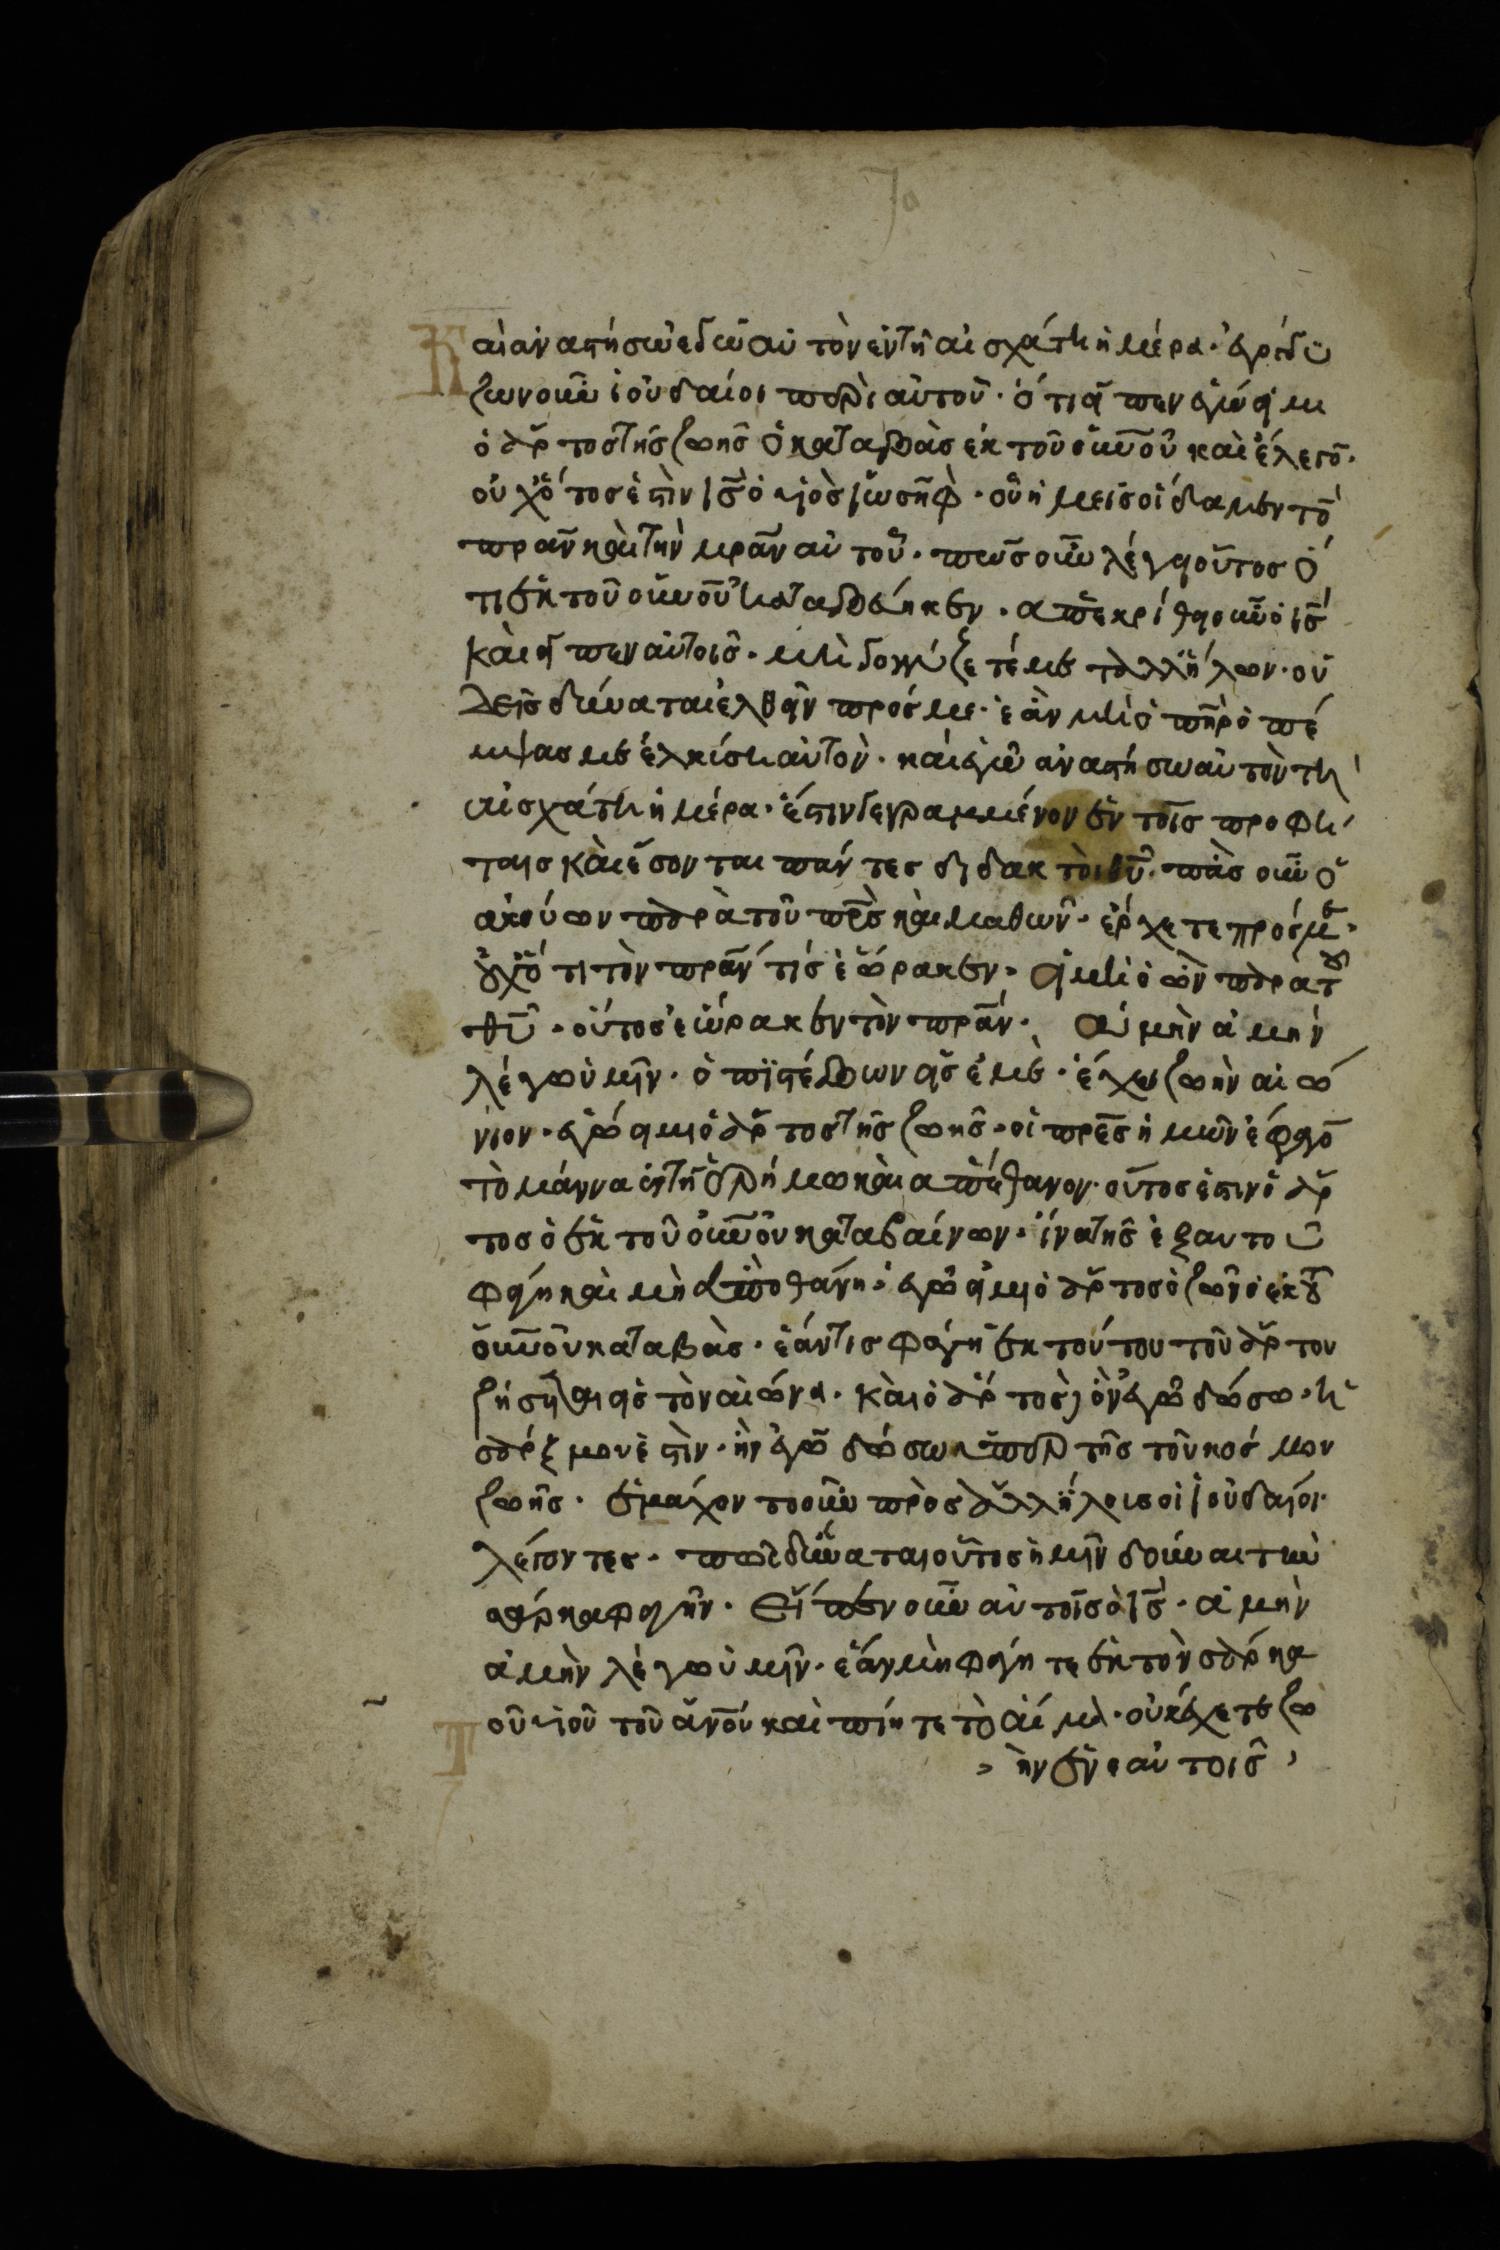 Καὶ ἀναστήσω ἐγὼ αὐτὸν ἐν τῆ αἰσχάτη ἡμέρα· ἐγόγγυ
ζων οὖν ἰουδαίοι περὶ αὐτοῦ· ὅτι εἶπεν ἐγώ εἰμι
ὁ ἄρτος τῆς ζωῆς ὁ καταβὰς ἐκ τοῦ οὐνοῦ καὶ ἔλεγον·
οὐχ οὗτος ἐστὶν ις ὁ υἱὸς ἰωσὴφ· οὗ ἡμεῖς οἴδαμεν τὸν
πραν καὶ τὴν μραν αὐτοῦ· πῶς οὖν λέγει οὗτος ὅ
τι ἐκ τοῦ οὐνοῦ καταβέβηκεν· ἀπεκρίθη οὖν ὁ ις
καὶ εἶπεν αὐτοῖς· μὴ γογγύζετε μετ ἀλλήλων· οὐ
δεὶς δύναται ἐλθεῖν πρός με· ἐὰν μὴ ὁ πηρ ὁ πέ
μψας με ἑλκύση αὐτὸν· καὶ ἐγὼ ἀναστήσω αὐτὸν τῆ
αἰσχάτη ἡμέρα· ἔστιν γεγραμμένον ἐν τοῖς προφή
ταις καὶ ἔσονται πάντες διδακτοὶ θυ· πᾶς οὖν ὁ
ἀκούων παρὰ τοῦ πρς καὶ μαθὼν· ἔρχετε πρός με·
οὐχ ὅτι τὸν πραν τίς ἑώρακεν· εἰ μὴ ὁ ὢν παρὰ τοῦ
θυ· οὗτος ἑώρακεν τὸν πραν· Ἀμὴν ἀμὴν
λέγω ὑμῖν· ὁ πιστέβων εἰς ἐμὲ· ἔχει ζωὴν αἰώ
νιον· ἐγώ εἰμι ὁ ἄρτος τῆς ζωῆς· οἱ πρες ἡμῶν ἔφαγον
τὸ μάννα ἐν τῆ ἐρήμω καὶ ἀπέθανον· οὗτος ἐστιν ὁ ἄρ
τος ὁ ἐκ τοῦ οὐνοῦ καταβαίνων· ἵνα τῆς ἐξ αυτοῦ
φάγη καὶ μὴ ἀποθάνη· ἐγώ εἰμι ὁ ἄρτος ὁ ζῶν ὁ ἐκ τοῦ
οὐνοῦ καταβὰς· ἐάν τις φάγη ἐκ τούτου τοῦ ἄρτου
ζήσηται εἰς τὸν αἰώνα· καὶ ὁ ἄρτος ὃν ἐγὼ δώσω· ἡ
σάρξ μου ἐστὶν· ἣν ἐγὼ δώσω ὑπὲρ τῆς τοῦ κόσμου
ζωῆς· ἐμάχοντο οὖν πρὸς ἀλλήλους οἱ ἰουδαίοι·
λέγοντες· πῶς δύναται οὗτος ἡμῖν δοῦναι τὴν
σάρκα φαγεῖν· Εἶπεν οὖν αὐτοῖς ὁ ις· ἀμὴν
ἀμὴν λέγω ὑμῖν· ἐὰν μὴ φάγητε ἐκ τὸν σάρκα
οὐ υἱοῦ τοῦ ἀνου καὶ πίητε τὸ αἷμα· οὐκ ἔχετε ζω
ὴν ἐν ἑαυτοῖς